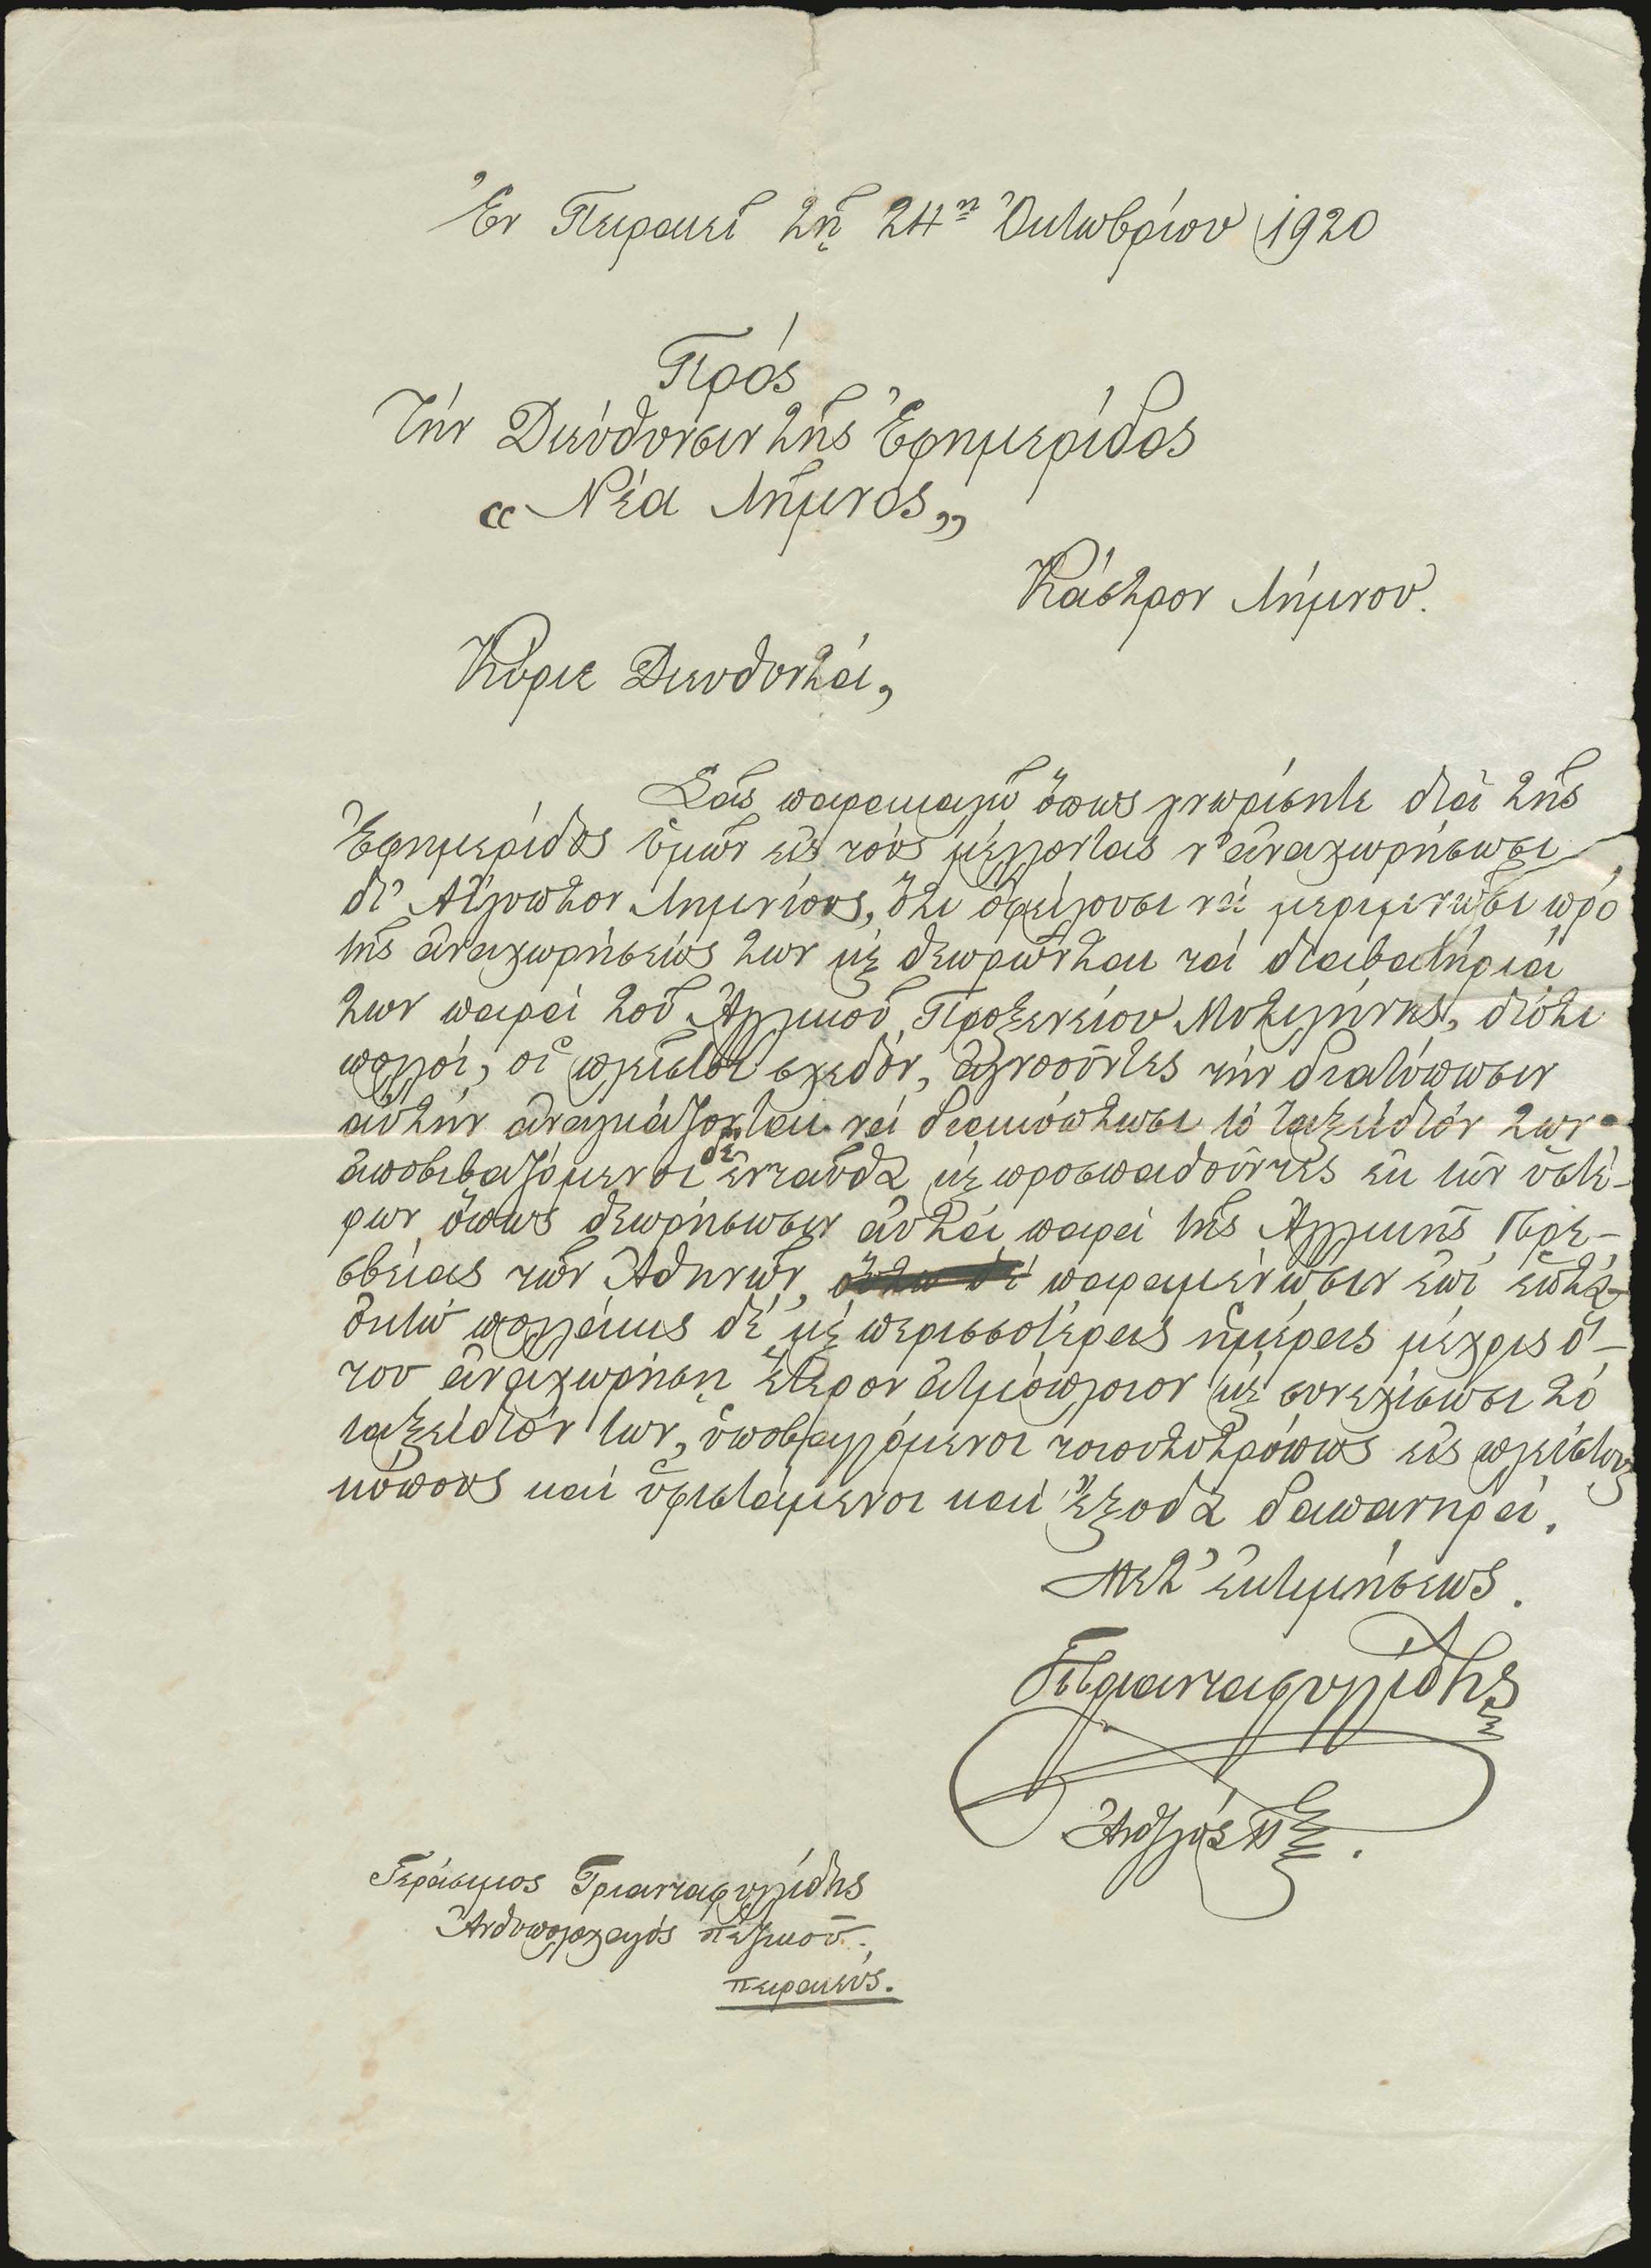 Ἐν Πειραιεῖ τῇ 24ῃ Ὀκτωβρίου 1920
Πρός
Τήν Διεύθυνσιν τῆς Ἐφημερίδος
« Νέα Λῆμνος „
Κάστρον Λήμνου.
Κύριε Διευθυντά,
Σᾶς παρακαλῶ ὅπως γνωρίσητε διά τῆς
Ἐφημερίδος ὑμῶν εἰς τούς μέλλοντας ν' ἀναχωρήσωσι
δι' Αἴγυπτον Λημνίους, ὅτι ὀφείλουσι νά μεριμνῶσι πρό
τῆς ἀναχωρήσεώς των κ̀ θεωρῶνται τά διαβατήριά
των παρά τοῦ Ἀγγλικοῦ Προξενείου Μυτιλήνης, διότι
πολλοί, οἱ πλεῖστοι σχεδόν, ἀγνοοῦντες τήν διατύπωσιν
αὐτήν ἀναγκάζονται νά διακόπτωσι τό ταξείδιόν των
ἀποβιβαζόμενοι δέ ἐνταῦθα κ̀ προσπαθοῦντες ἐκ τῶν ὑστέ-
ρων ὅπως θεωρήσωσιν αὐτά παρά τῆς Ἀγγλικῆς Πρε-
σβείας τῶν Ἀθηνῶν, παραμένωσιν ἐπί ἑπτά-
ὀκτώ πολλάκις δέ κ̀ περισσοτέρας ἡμέρας μέχρις ὅ-
του ἀναχωρήσῃ ἕτερον ἀτμόπλοιον κ̀ συνεχίσωσι τό
ταξείδιόν των, ὑποβαλλόμενοι τοιουτοτρόπως εἰς πλείστους
κόπους καί ὑφιστάμενοι καί ἔξοδα δαπανηρά.
Μετ' ἐκτιμήσεως.
Γ Τριανταφυλλίδης
Γεράσιμος Τριανταφυλλίδης
Ἀνθυπολοχαγός πεζικοῦ.
Πειραιεύς.